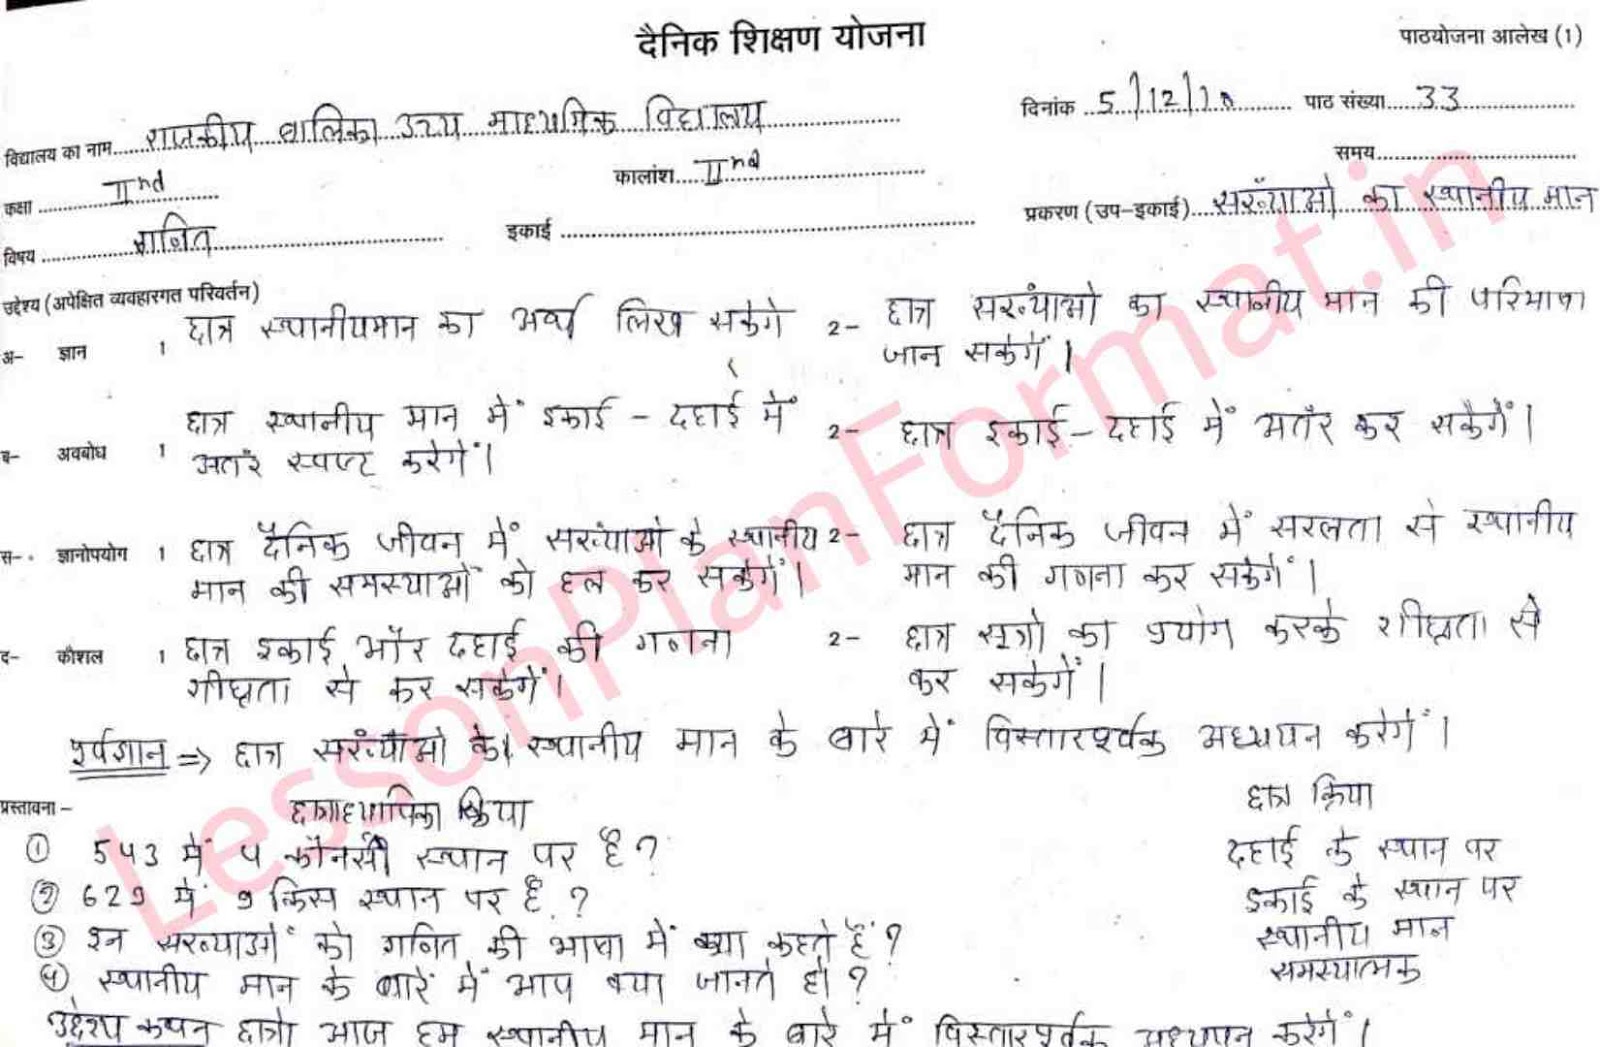 दैनिक शिक्षण योजना
पाठयोजना आलेख (1)
विद्यालय का नाम राजकीय बालिका उच्य माध्यमिक विद्यालय
दिनांक 5/12/18 पाठ संख्या 33
कक्षा IInd
कालांश IInd
समय
विषय गणित
इकाई
प्रकरण (उप-इकाई) संख्याओ का स्थानीय मान
उद्देश्य (अपेक्षित व्यवहारगत परिवर्तन)
अ- ज्ञान 1 छात्र स्थानीयमान का अर्थ लिख सकेगे
2- छात्र संख्याओ का स्थानीय मान की परिभाषा
जान सकेगें।
ब- अवबोध 1 छात्र स्थानीय मान में इकाई - दहाई में
अतंर स्पष्ट करेगें।
2- छात्र इकाई - दहाई में अतंर कर सकेगें।
स- ज्ञानोपयोग 1 छात्र दैनिक जीवन में संख्याओ के स्थानीय
मान की समस्याओं को हल कर सकेगें।
2- छात्र दैनिक जीवन में सरलता से स्थानीय
मान की गणना कर सकेगें।
द- कौशल 1 छात्र इकाई और दहाई की गणना
शीघ्रता से कर सकेगें।
2- छात्र सूत्रो का प्रयोग करके शीघ्रता से
कर सकेगें।
पूर्वज्ञान => छात्र संख्याओ के स्थानीय मान के बारे में विस्तारपूर्वक अध्ययन करेगें।
प्रस्तावना - छात्राध्यापिका क्रिया
छात्र क्रिया
① 543 में 4 कौनसी स्थान पर है?
दहाई के स्थान पर
② 629 में 9 किस स्थान पर है ?
इकाई के स्थान पर
③ इन संख्याओं को गणित की भाषा में क्या कहते हैं?
स्थानीय मान
④ स्थानीय मान के बारें में आप क्या जानते हो?
समस्यात्मक
उद्देश्य कथन छात्रो आज हम स्थानीय मान के बारे में विस्तारपूर्वक अध्ययन करेगें।
LessonPlanFormat.in